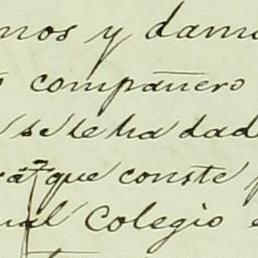 mos y dam
compañero
se le ha dad
que conste
Colegio